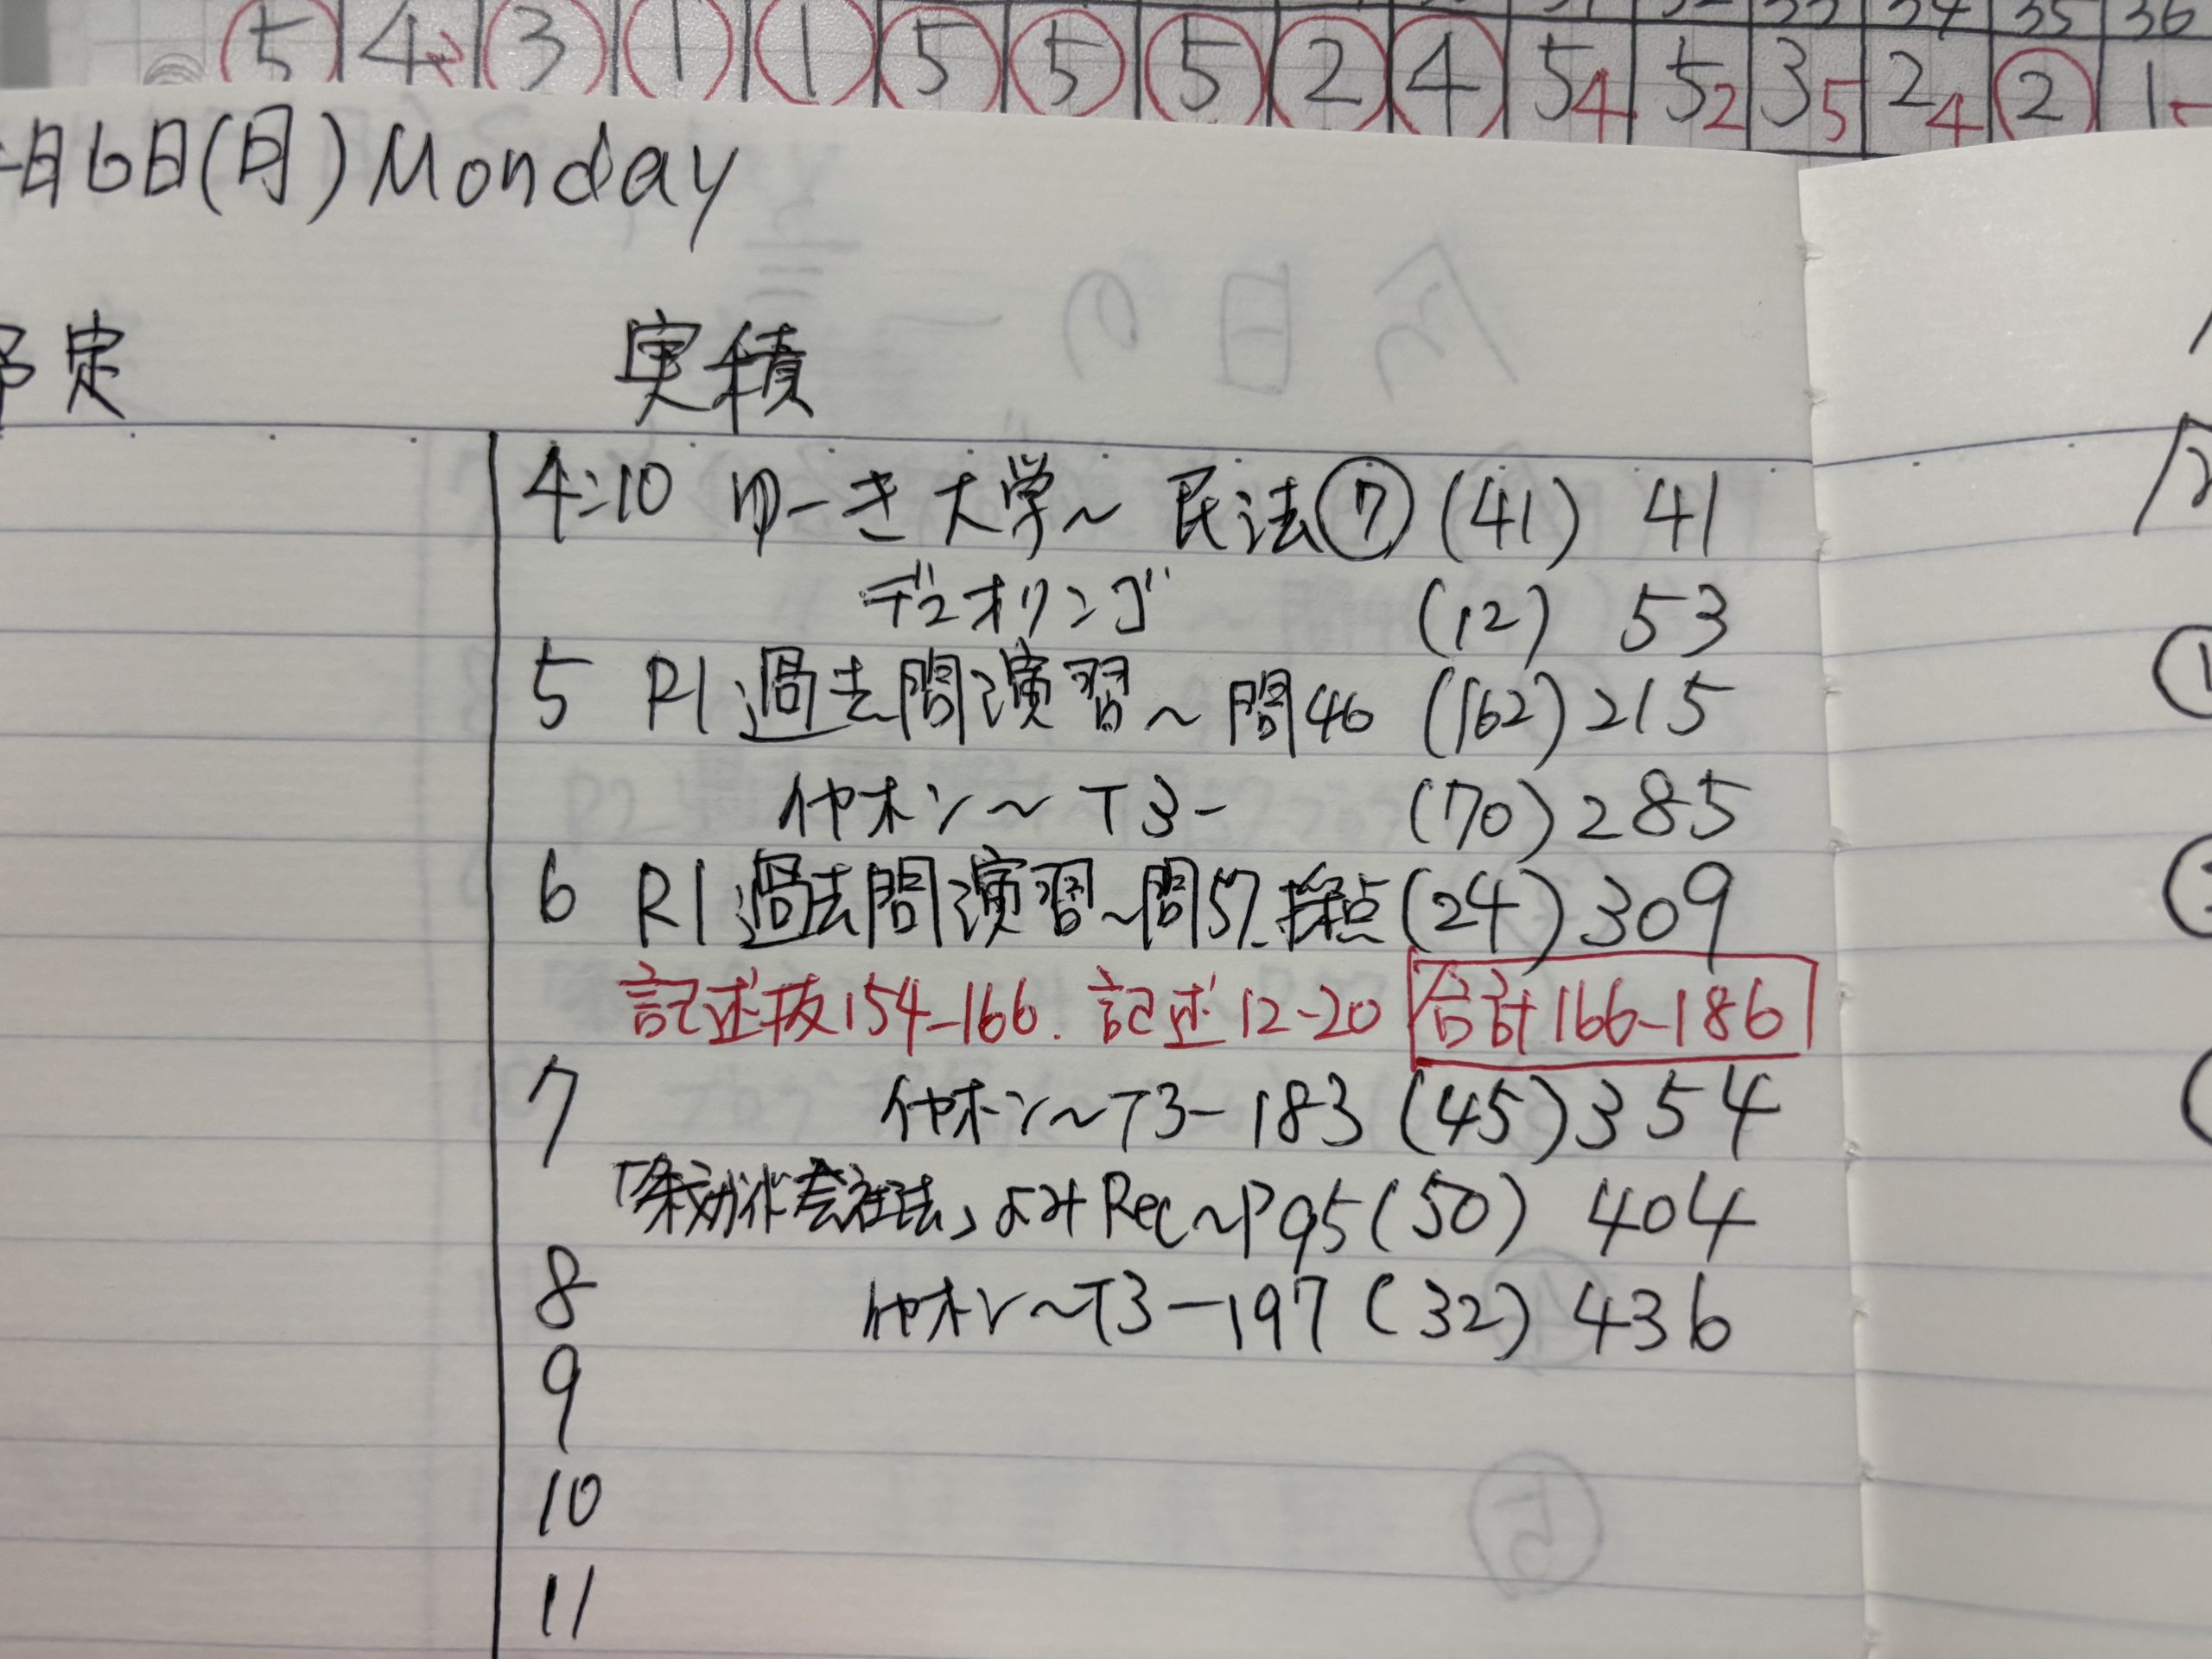 5 4 2 3 1 1 5 5 5 2 4 5 4 5 2 3 5 2 4 2 1
月6日(月) Monday
予定 実積
4:10 ゆーき大学〜民法⑦ (41) 41
デュオリンゴ (12) 53
5 R1過去問演習〜問46 (162) 215
イヤホン〜T3- (70) 285
6 R1過去問演習〜問57.採点 (24) 309
記述抜154-166. 記述12-20 合計166-186
7 イヤホン〜T3-183 (45) 354
会社法」よみRec〜P95 (50) 404
8 イヤホン〜T3-197 (32) 436
9
10
11